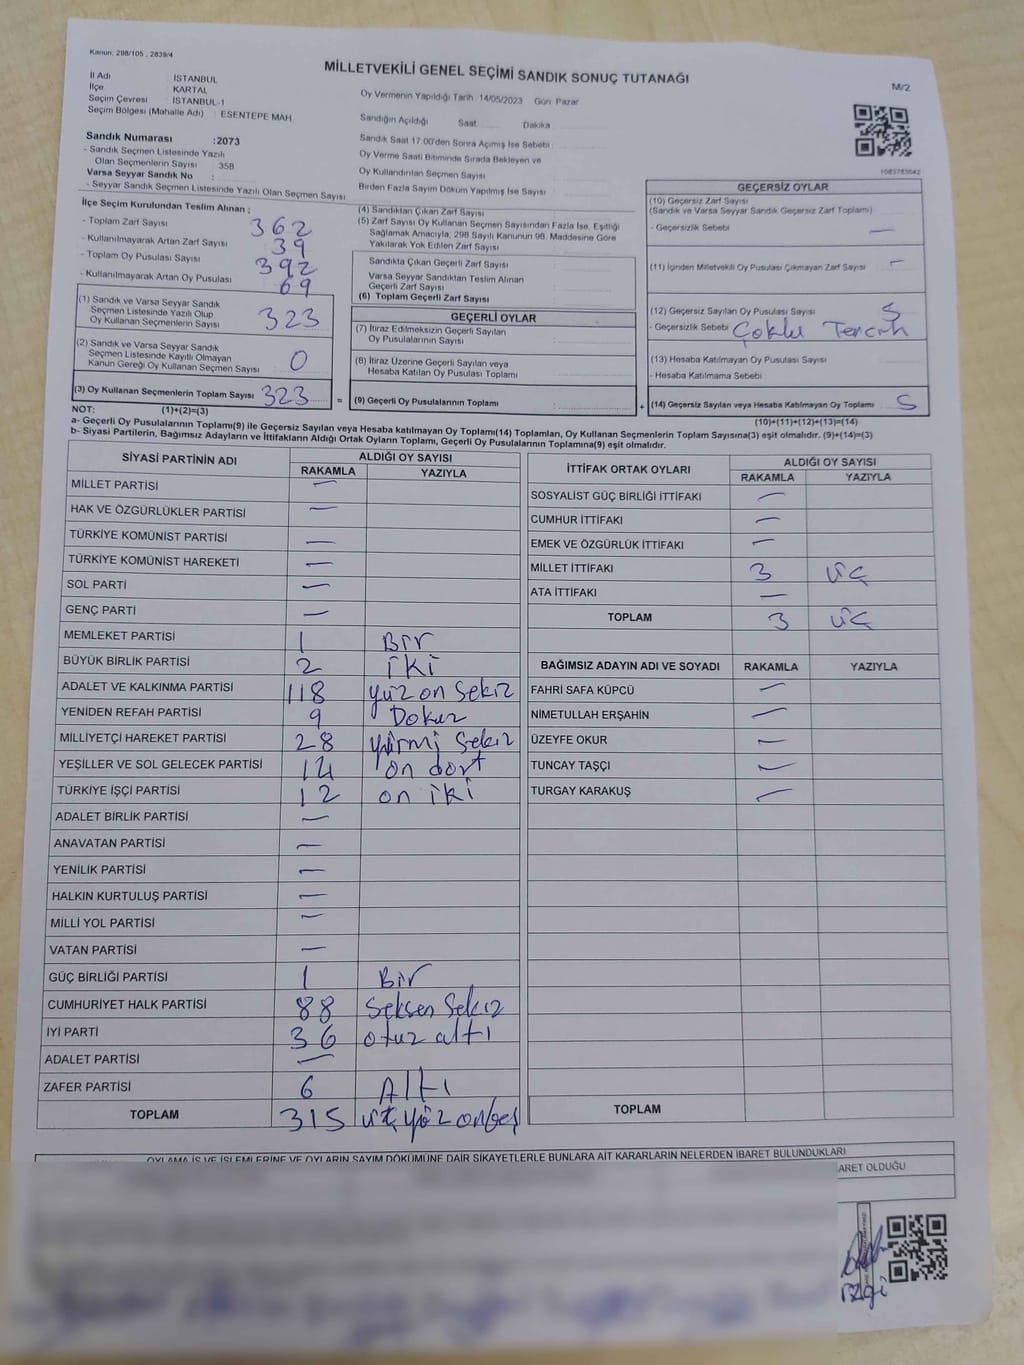 Kanun: 298/105 , 2839/4
MİLLETVEKİLİ GENEL SEÇİMİ SANDIK SONUÇ TUTANAĞI
M/2
İl Adı İSTANBUL
İlçe KARTAL
Seçim Çevresi İSTANBUL-1
Seçim Bölgesi (Mahalle Adı) : ESENTEPE MAH.
Oy Vermenin Yapıldığı Tarih 14/05/2023 Gün Pazar
Sandığın Açıldığı Saat Dakika
Sandık Numarası :2073
- Sandık Seçmen Listesinde Yazılı
Olan Seçmenlerin Sayısı : 358
Varsa Seyyar Sandık No :
- Seyyar Sandık Seçmen Listesinde Yazılı Olan Seçmen Sayısı
Sandık Saat 17.00'den Sonra Açımış İse Sebebi
Oy Verme Saati Bitiminde Sırada Bekleyen ve
Oy Kullandırılan Seçmen Sayısı
Birden Fazla Sayım Döküm Yapılmış İse Sayısı
1083783042
İlçe Seçim Kurulundan Teslim Alınan ;
- Toplam Zarf Sayısı 362
- Kullanılmayarak Artan Zarf Sayısı 39
- Toplam Oy Pusulası Sayısı 392
- Kullanılmayarak Artan Oy Pusulası 69
(1) Sandık ve Varsa Seyyar Sandık
Seçmen Listesinde Yazılı Olup
Oy Kullanan Seçmenlerin Sayısı 323
(2) Sandık ve Varsa Seyyar Sandık
Seçmen Listesinde Kayıtlı Olmayan
Kanun Gereği Oy Kullanan Seçmen Sayısı 0
(3) Oy Kullanan Seçmenlerin Toplam Sayısı 323 =
(4) Sandıktan Çıkan Zarf Sayısı
(5) Zarf Sayısı Oy Kullanan Seçmen Sayısından Fazla İse, Eşitliği
Sağlamak Amacıyla, 298 Sayılı Kanunun 98. Maddesine Göre
Yakılarak Yok Edilen Zarf Sayısı
Sandıkta Çıkan Geçerli Zarf Sayısı
Varsa Seyyar Sandıktan Teslim Alınan
Geçerli Zarf Sayısı
(6) Toplam Geçerli Zarf Sayısı
GEÇERLİ OYLAR
(7) İtiraz Edilmeksizin Geçerli Sayılan
Oy Pusulalarının Sayısı
(8) İtiraz Üzerine Geçerli Sayılan veya
Hesaba Katılan Oy Pusulası Toplamı
(9) Geçerli Oy Pusulalarının Toplamı +
GEÇERSİZ OYLAR
(10) Geçersiz Zarf Sayısı
(Sandık ve Varsa Seyyar Sandık Geçersiz Zarf Toplamı)
- Geçersizlik Sebebi —
(11) İçinden Milletvekili Oy Pusulası Çıkmayan Zarf Sayısı —
(12) Geçersiz Sayılan Oy Pusulası Sayısı 5
- Geçersizlik Sebebi Çoklu Tercih
(13) Hesaba Katılmayan Oy Pusulası Sayısı
- Hesaba Katılmama Sebebi
(14) Geçersiz Sayılan veya Hesaba Katılmayan Oy Toplamı 5
NOT: (1)+(2)=(3)
(10)+(11)+(12)+(13)=(14)
a- Geçerli Oy Pusulalarının Toplamı(9) ile Geçersiz Sayılan veya Hesaba katılmayan Oy Toplamı(14) Toplamları, Oy Kullanan Seçmenlerin Toplam Sayısına(3) eşit olmalıdır. (9)+(14)=(3)
b- Siyasi Partilerin, Bağımsız Adayların ve İttifakların Aldığı Ortak Oyların Toplamı, Geçerli Oy Pusulalarının Toplamına(9) eşit olmalıdır.
SİYASİ PARTİNİN ADI ALDIĞI OY SAYISI
RAKAMLA YAZIYLA
MİLLET PARTİSİ —
HAK VE ÖZGÜRLÜKLER PARTİSİ —
TÜRKİYE KOMÜNİST PARTİSİ —
TÜRKİYE KOMÜNİST HAREKETİ —
SOL PARTİ —
GENÇ PARTİ —
MEMLEKET PARTİSİ 1 Bir
BÜYÜK BİRLİK PARTİSİ 2 iki
ADALET VE KALKINMA PARTİSİ 118 yüz on sekiz
YENİDEN REFAH PARTİSİ 9 Dokuz
MİLLİYETÇİ HAREKET PARTİSİ 28 yirmi sekiz
YEŞİLLER VE SOL GELECEK PARTİSİ 14 on dört
TÜRKİYE İŞÇİ PARTİSİ 12 on iki
ADALET BİRLİK PARTİSİ —
ANAVATAN PARTİSİ —
YENİLİK PARTİSİ —
HALKIN KURTULUŞ PARTİSİ —
MİLLİ YOL PARTİSİ —
VATAN PARTİSİ —
GÜÇ BİRLİĞİ PARTİSİ 1 Bir
CUMHURİYET HALK PARTİSİ 88 Seksen Sekiz
İYİ PARTİ 36 otuz altı
ADALET PARTİSİ —
ZAFER PARTİSİ 6 Altı
TOPLAM 315 üçyüz onbeş
İTTİFAK ORTAK OYLARI ALDIĞI OY SAYISI
RAKAMLA YAZIYLA
SOSYALİST GÜÇ BİRLİĞİ İTTİFAKI —
CUMHUR İTTİFAKI —
EMEK VE ÖZGÜRLÜK İTTİFAKI —
MİLLET İTTİFAKI 3 üç
ATA İTTİFAKI —
TOPLAM 3 üç
BAĞIMSIZ ADAYIN ADI VE SOYADI RAKAMLA YAZIYLA
FAHRİ SAFA KÜPCÜ —
NİMETULLAH ERŞAHİN —
ÜZEYFE OKUR —
TUNCAY TAŞÇI —
TURGAY KARAKUŞ —
TOPLAM
OYLAMA İŞ VE İŞLEMLERİNE VE OYLARIN SAYIM DÖKÜMÜNE DAİR ŞİKAYETLERLE BUNLARA AİT KARARLARIN NELERDEN İBARET BULUNDUKLARI
ARET OLDUĞU